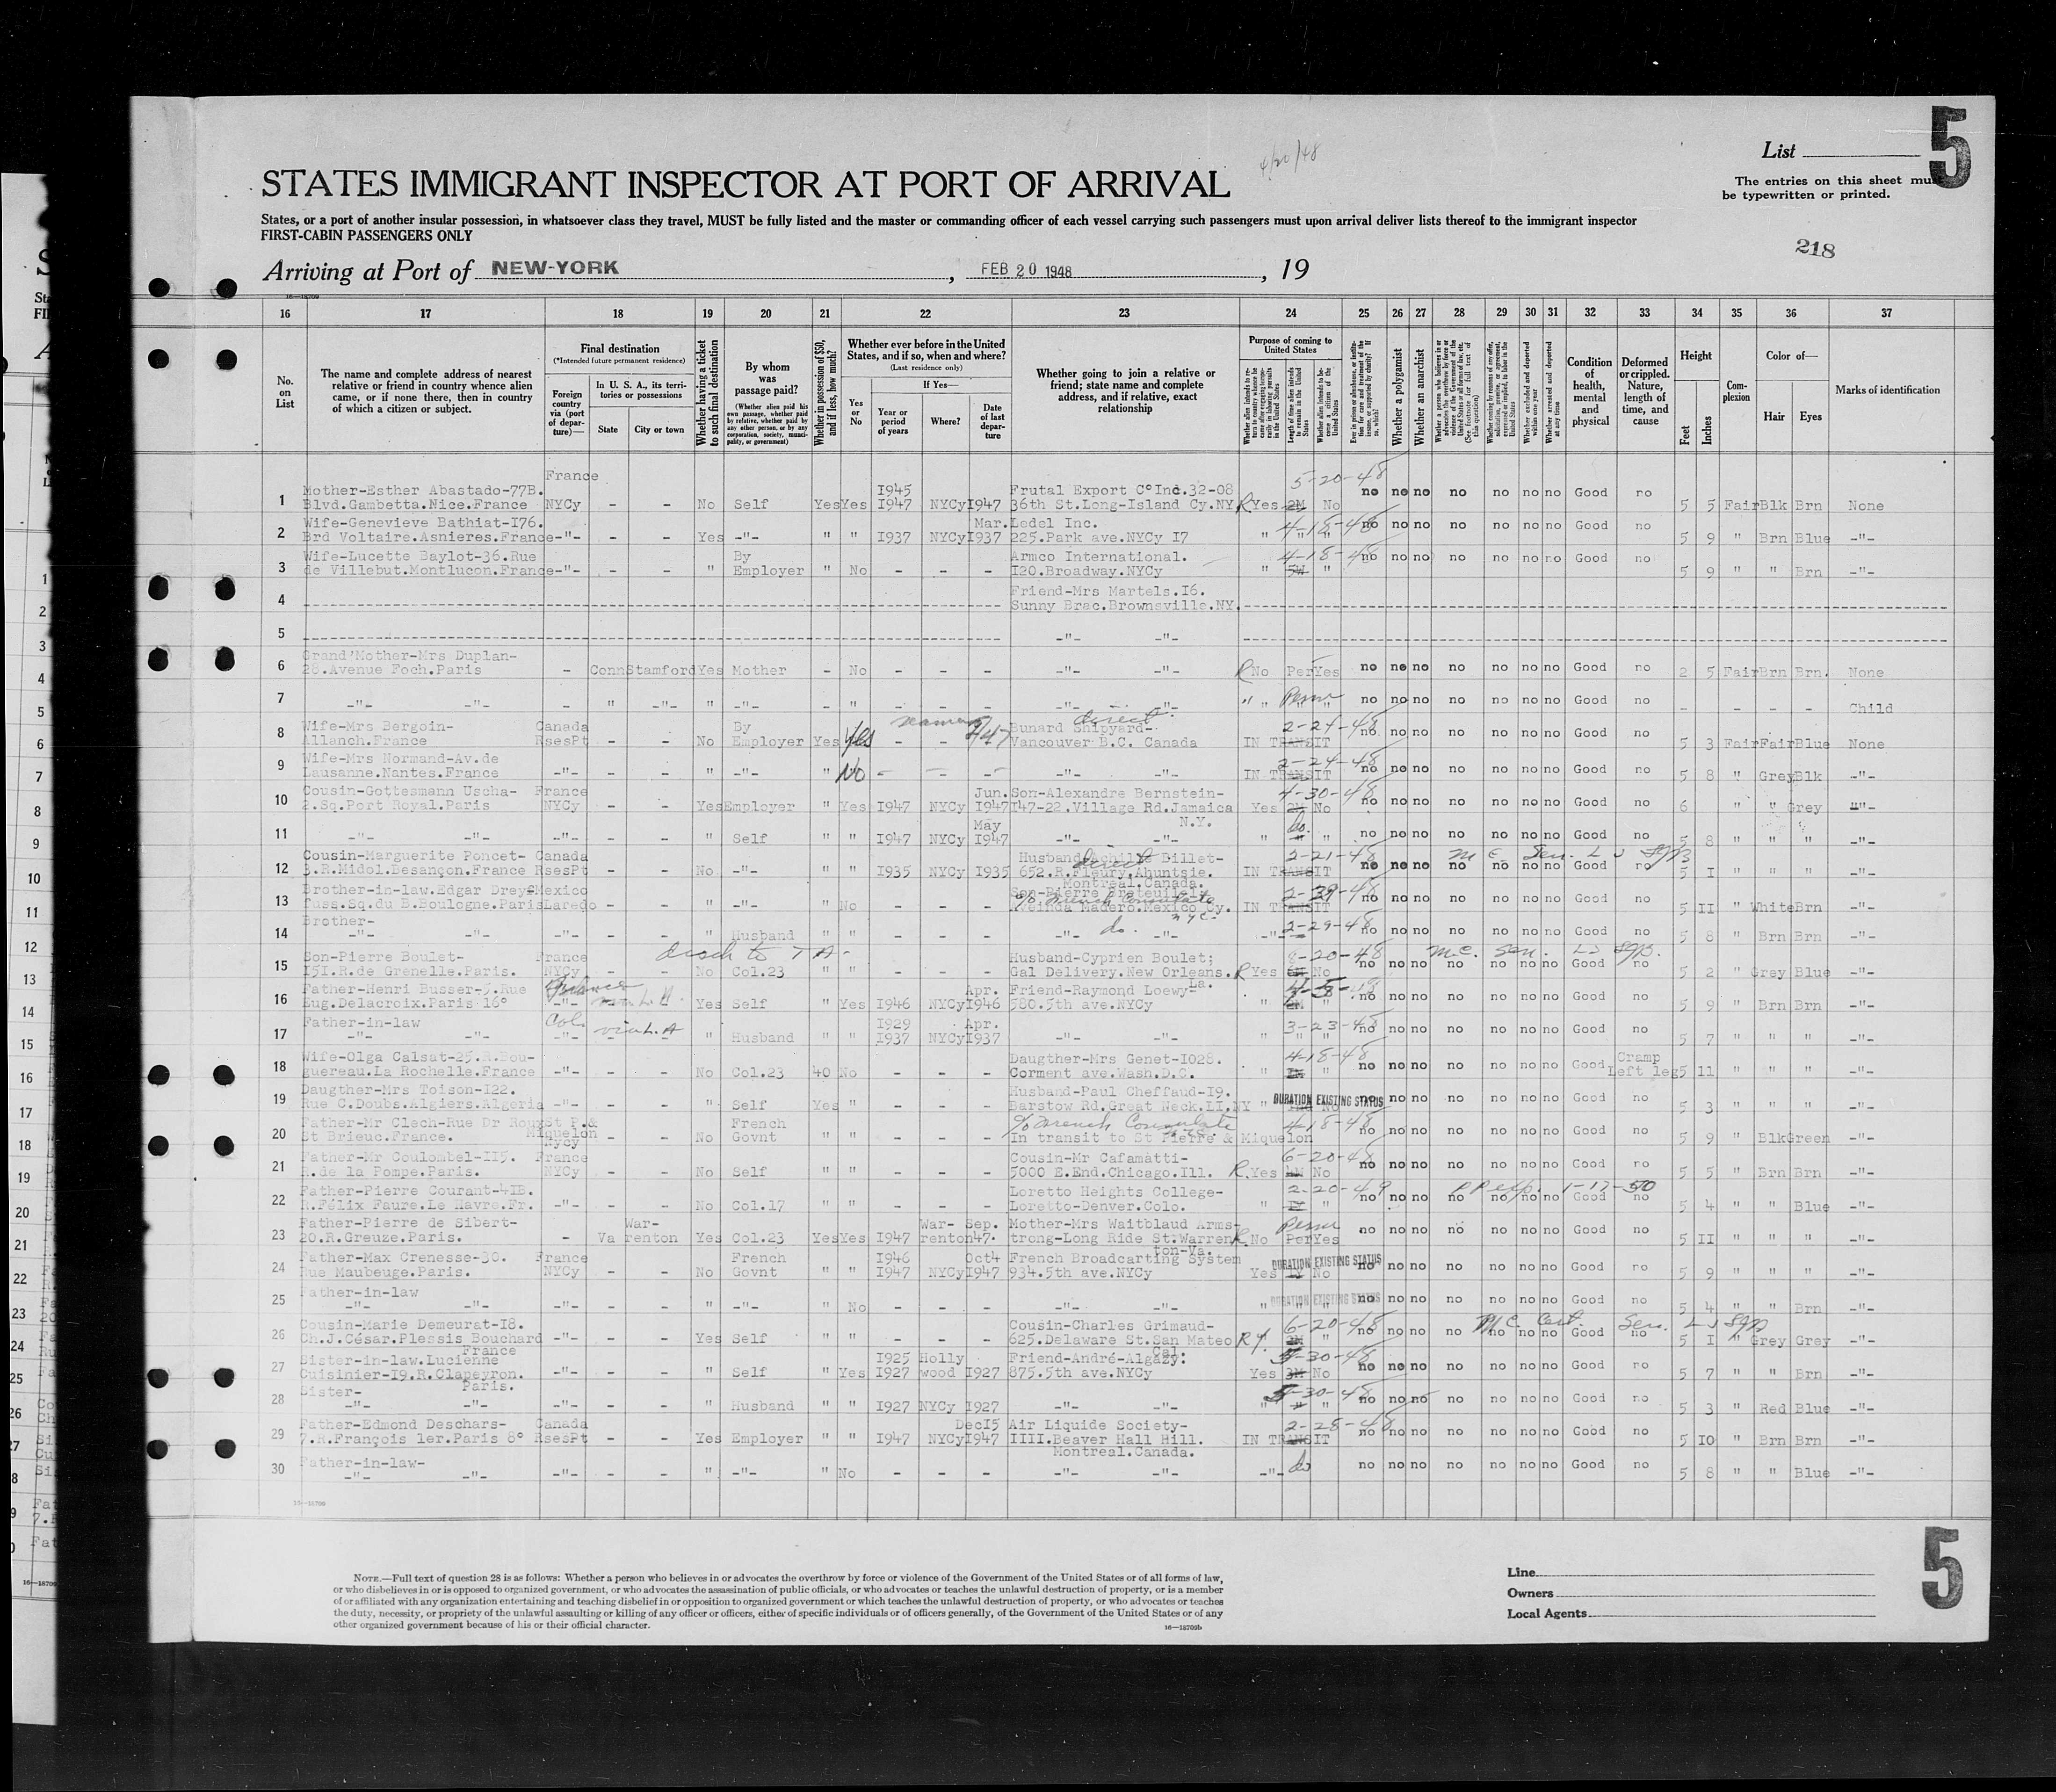 4/20/48
List
5
STATES IMMIGRANT INSPECTOR AT PORT OF ARRIVAL
The entries on this sheet must
be typewritten or printed.
States, or a port of another insular possession, in whatsoever class they travel, MUST be fully listed and the master or commanding officer of each vessel carrying such passengers must upon arrival deliver lists thereof to the immigrant inspector
FIRST-CABIN PASSENGERS ONLY
218
Arriving at Port of NEW-YORK, FEB 20 1948, 19
16—18709
16 17 18 19 20 21 22 23 24 25 26 27 28 29 30 31 32 33 34 35 36 37
No. on List
The name and complete address of nearest relative or friend in country whence alien came, or if none there, then in country of which a citizen or subject.
Final destination
(*Intended future permanent residence)
Foreign country via (port of departure)—
In U. S. A., its territories or possessions
State
City or town
Whether having a ticket to such final destination
By whom was passage paid?
(Whether alien paid his own passage, whether paid by relative, whether paid by any other person, or by any corporation, society, municipality, or government)
Whether in possession of $50, and if less, how much?
Whether ever before in the United States, and if so, when and where?
(Last residence only)
Yes or No
If Yes—
Year or period of years
Where?
Date of last departure
Whether going to join a relative or friend; state name and complete address, and if relative, exact relationship
Purpose of coming to United States
Whether a polygamist
Whether an anarchist
Condition of health, mental and physical
Deformed or crippled. Nature, length of time, and cause
Height
Feet
Inches
Complexion
Color of—
Hair
Eyes
Marks of identification
France 5-20-48
Mother-Esther Abastado-77B. I945 Frutal Export C°Inc.32-08 no no no no no no no Good no
1 Blvd.Gambetta.Nice.France NYCy - - No Self Yes Yes I947 NYCy I947 36th St.Long-Island Cy.NY R Yes 2M No 5 5 Fair Blk Brn None
Wife-Genevieve Bathiat-I76. Mar. Ledel Inc. 4-18-48 no no no no no no no Good no
2 Brd Voltaire.Asnieres.France -"- - - Yes -"- " " I937 NYCy I937 225.Park ave.NYCy I7 " " " 5 9 " Brn Blue -"-
Wife-Lucette Baylot-36.Rue By Armco International. 4-18-48 no no no no no no no Good no
3 de Villebut.Montlucon.France -"- - - " Employer " No - - - I20.Broadway.NYCy " " 5 9 " " Brn -"-
Friend-Mrs Martels.I6.
4 Sunny Brac.Brownsville.NY.
5 -"- -"-
Grand'Mother-Mrs Duplan-
6 28.Avenue Foch.Paris - Conn Stamford Yes Mother - No - - - -"- -"- R No Per Yes no no no no no no no Good no 2 5 Fair Brn Brn. None
7 -"- -"- - " -"- " -"- - " - - - -"- -"- " " Perm no no no no no no no Good no - - - - - Child
Wife-Mrs Bergoin- Canada By seaman direct Bunard Shipyard- 2-24-48 no no no no no no no Good no
8 Allanch.France RsesPt - - No Employer Yes Yes - - Vancouver B.C. Canada IN TRANSIT 5 3 Fair Fair Blue None
Wife-Mrs Normand-Av.de 2-24-48 no no no no no no no Good no
9 Lausanne.Nantes.France -"- - - " -"- " No - - - -"- -"- IN TRANSIT 5 8 " Grey Blk -"-
Cousin-Gottesmann Uscha- France Jun. Son-Alexandre Bernstein- 4-30-48 no no no no no no no Good no
10 2.Sq.Port Royal.Paris NYCy - - Yes Employer " Yes I947 NYCy I947 I47-22.Village Rd.Jamaica Yes 2M No 6 " " Grey -"-
May N.Y. do.
11 -"- -"- -"- " Self " " I947 NYCy I947 -"- -"- " " " no no no no no no no Good no 5 8 " " " -"-
Cousin-Marguerite Poncet- Canada Husband Achille Billet- direct 2-21-48 M C Sen. L J Sgn
12 3.R.Midol.Besançon.France RsesPt - - No -"- " " I935 NYCy I935 652.R.Fleury.Ahuntsie. IN TRANSIT no no no no no no no Good no 5 I " " " -"-
Montreal.Canada.
Brother-in-law.Edgar Dreyf Mexico Son-Pierre Breteuille 2-29-48
13 fuss.Sq.du B.Boulogne.Paris Laredo - - " -"- " No - - - c/o French Consulate Madero.Mexico Cy. IN TRANSIT no no no no no no no Good no 5 II " White Brn -"-
Brother- nyc- 2-29-48
14 -"- -"- -"- - - " Husband " " - - - -"- do. -"- -"- no no no no no no no Good no 5 8 " Brn Brn -"-
Son-Pierre Boulet- France disch to T A- Husband-Cyprien Boulet; 8-20-48 M.C. Sen. L J Sgn.
15 I5I.R.de Grenelle.Paris. NYCy - - No Col.23 " " - - - Gal Delivery.New Orleans. La. R Yes No no no no no no no no Good no 5 2 " Grey Blue -"-
Father-Henri Busser-5.Rue France Apr. Friend-Raymond Loewy-
16 Eug.Delacroix.Paris 16° -"- via L.A. Yes Self " Yes I946 NYCy I946 580.5th ave.NYCy " " no no no no no no no Good no 5 9 " Brn Brn -"-
Father-in-law Cal. via L.A I929 Apr. 3-23-48
17 -"- -"- -"- - - " Husband " " I937 NYCy I937 -"- -"- " " " no no no no no no no Good no 5 7 " " " -"-
Wife-Olga Calsat-25.R.Bou- Daugther-Mrs Genet-I028. 4-18-48 Cramp
18 guereau.La Rochelle.France -"- - - No Col.23 40 No - - - Corment ave.Wash.D.C. " " no no no no no no no Good Left leg 5 11 " " " -"-
Daugther-Mrs Toison-I22. Husband-Paul Cheffaud-I9. DURATION EXISTING STATUS
19 Rue C.Doubs.Algiers.Algeria -"- - - " Self Yes " - - - Barstow Rd.Great Neck.LI.NY " No no no no no no no no Good no 5 3 " " " -"-
Father-Mr Clech-Rue Dr Roux St P.& Miquelon French c/o French Consulate 4-18-48
20 St Brieuc.France. Nycy - - No Govnt " " - - - In transit to St Pierre & Miquelon no no no no no no no Good no 5 9 " Blk Green -"-
Father-Mr Coulombel-II5. France Cousin-Mr Cafamatti- 6-20-48
21 R.de la Pompe.Paris. NYCy - - No Self " " - - - 5000 E.End.Chicago.Ill. R Yes No no no no no no no no Good no 5 5 " Brn Brn -"-
Father-Pierre Courant-4IB. Loretto Heights College- 2-20-49 1-17-50
22 R.Félix Faure.Le Havre.Fr. -"- - - No Col.I7 " " - - - Loretto-Denver.Colo. " " no no no no no no no Good no 5 4 " " Blue -"-
Father-Pierre de Sibert- War- War- Sep. Mother-Mrs Waitblaud Arms- Perm
23 20.R.Greuze.Paris. - Va renton Yes Col.23 Yes Yes I947 renton 47. trong-Long Ride St.Warren R No Per Yes no no no no no no no Good no 5 II " " " -"-
ton-Va.
Father-Max Crenesse-30. France French I946 Oct4 French Broadcarting System DURATION EXISTING STATUS
24 Rue Maubeuge.Paris. NYCy - - No Govnt " " I947 NYCy I947 934.5th ave.NYCy Yes 1Y No no no no no no no no Good no 5 9 " " " -"-
Father-in-law DURATION EXISTING STATUS
25 -"- -"- -"- - - " -"- " No - - - -"- -"- " " " no no no no no no no Good no 5 4 " " Brn -"-
Cousin-Marie Demeurat-I8. Cousin-Charles Grimaud- 6-20-48 M C Cert. Sen. L J Sgn
26 Ch.J.César.Plessis Bouchard -"- - - Yes Self " " - - - 625.Delaware St.San Mateo R " no no no no no no no Good no 5 I " Grey Grey -"-
France Cal.
Sister-in-law.Lucienne I925 Holly Friend-André-Algazy: 5-30-48
27 Cuisinier-I9.R.Clapeyron. -"- - - " Self " Yes I927 wood I927 875.5th ave.NYCy Yes 3M No no no no no no no no Good no 5 7 " " Brn -"-
Sister- Paris. 5-30-48
28 -"- -"- -"- - - " Husband " " I927 NYCy I927 -"- -"- " " " no no no no no no no Good no 5 3 " Red Blue -"-
Father-Edmond Deschars- Canada Dec I5 Air Liquide Society- 2-28-48
29 7.R.François 1er.Paris 8° RsesPt - - Yes Employer " " I947 NYCy I947 IIII.Beaver Hall Hill. IN TRANSIT no no no no no no no Good no 5 IO " Brn Brn -"-
Montreal.Canada.
Father-in-law- do
30 -"- -"- -"- - - " -"- " No - - - -"- -"- -"- no no no no no no no Good no 5 8 " " Blue -"-
16—18709
NOTE.—Full text of question 28 is as follows: Whether a person who believes in or advocates the overthrow by force or violence of the Government of the United States or of all forms of law,
or who disbelieves in or is opposed to organized government, or who advocates the assassination of public officials, or who advocates or teaches the unlawful destruction of property, or is a member
of or affiliated with any organization entertaining and teaching disbelief in or opposition to organized government or which teaches the unlawful destruction of property, or who advocates or teaches
the duty, necessity, or propriety of the unlawful assaulting or killing of any officer or officers, either of specific individuals or of officers generally, of the Government of the United States or of any
other organized government because of his or their official character.
16—18709b
Line
Owners
Local Agents
5